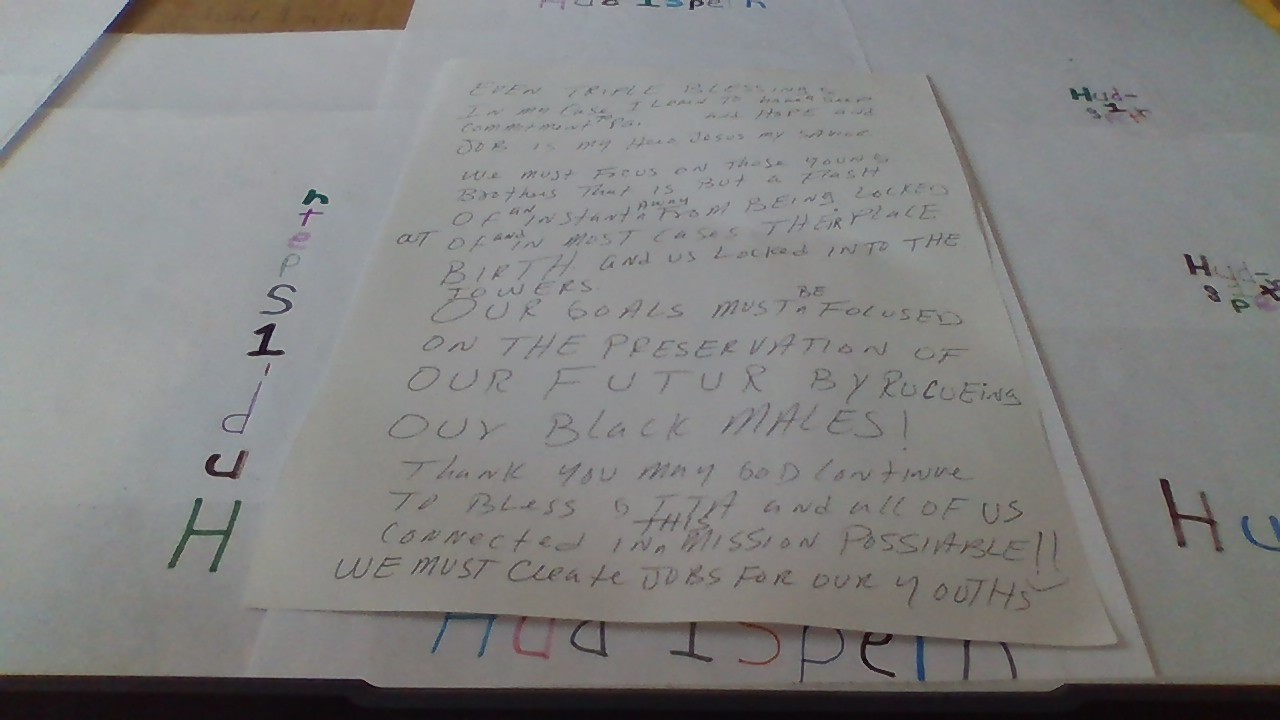 EVEN TRIPLE BLESSINGS
IN my Case I LOAN TO
Commitment TO and HOPE and
JOB is my Hero Jesus my SAVIOR
We must Focus on Those YOUNG
Brothers That is BUT a FLASH
OF an INStant Away From BEING LOCKED
aT OF and IN MOST Cases THEIR PlaCE
BIRTH and us Locked INTO THE
TOWERS.
OUR GOALS MUST BE FOCUSED
ON THE PRESERVATION OF
OUR FUTUR BY RUCUEing
OUr Black MALES!
Thank you may GOD Continue
To Bless and all OF US
Connected IN THIS MISSION POSSIABLE!!
WE MUST Create JOBS FOR OUR YOUTHS
Hud-1Speth
Hud-
Hud-
Hu
Hud 1Speth